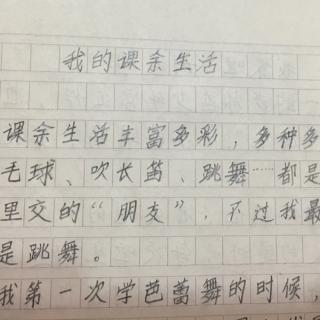 我的课余生活
课余生活丰富多彩，多种多
毛球、吹长笛、跳舞……都是
里交的“朋友”，不过我最
是跳舞。
我第一次学芭蕾舞的时候，